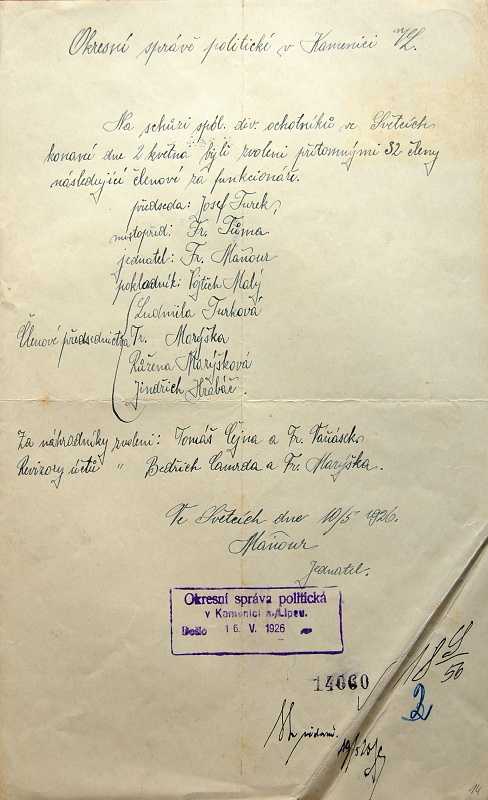 Okresní správě politické v Kamenici n/L.
Na schůzi spol. div. ochotníků ve Světcích
konané dne 2 května byli zvoleni přítomnými 32 členy
následující členové za funkcionáře.
předseda: Josef Turek,
místopřed: Fr. Tůma
jednatel: Fr. Maňour
pokladník: Vojtěch Malý
Ludmila Turková
Členové předsednictva Fr. Maryška
Růžena Maryšková
Jindřich Hrabáč.
Za náhradníky zvoleni: Tomáš Cejna a Fr. Vaňásek
Revizory účtů " Bedřich Camrda a Fr. Maryška.
Ve Světcích dne 10/5 1926.
Maňour
Jednatel.
Okresní správa politická
v Kamenici n./Lipou.
Došlo 16. V. 1926
14060
2
14